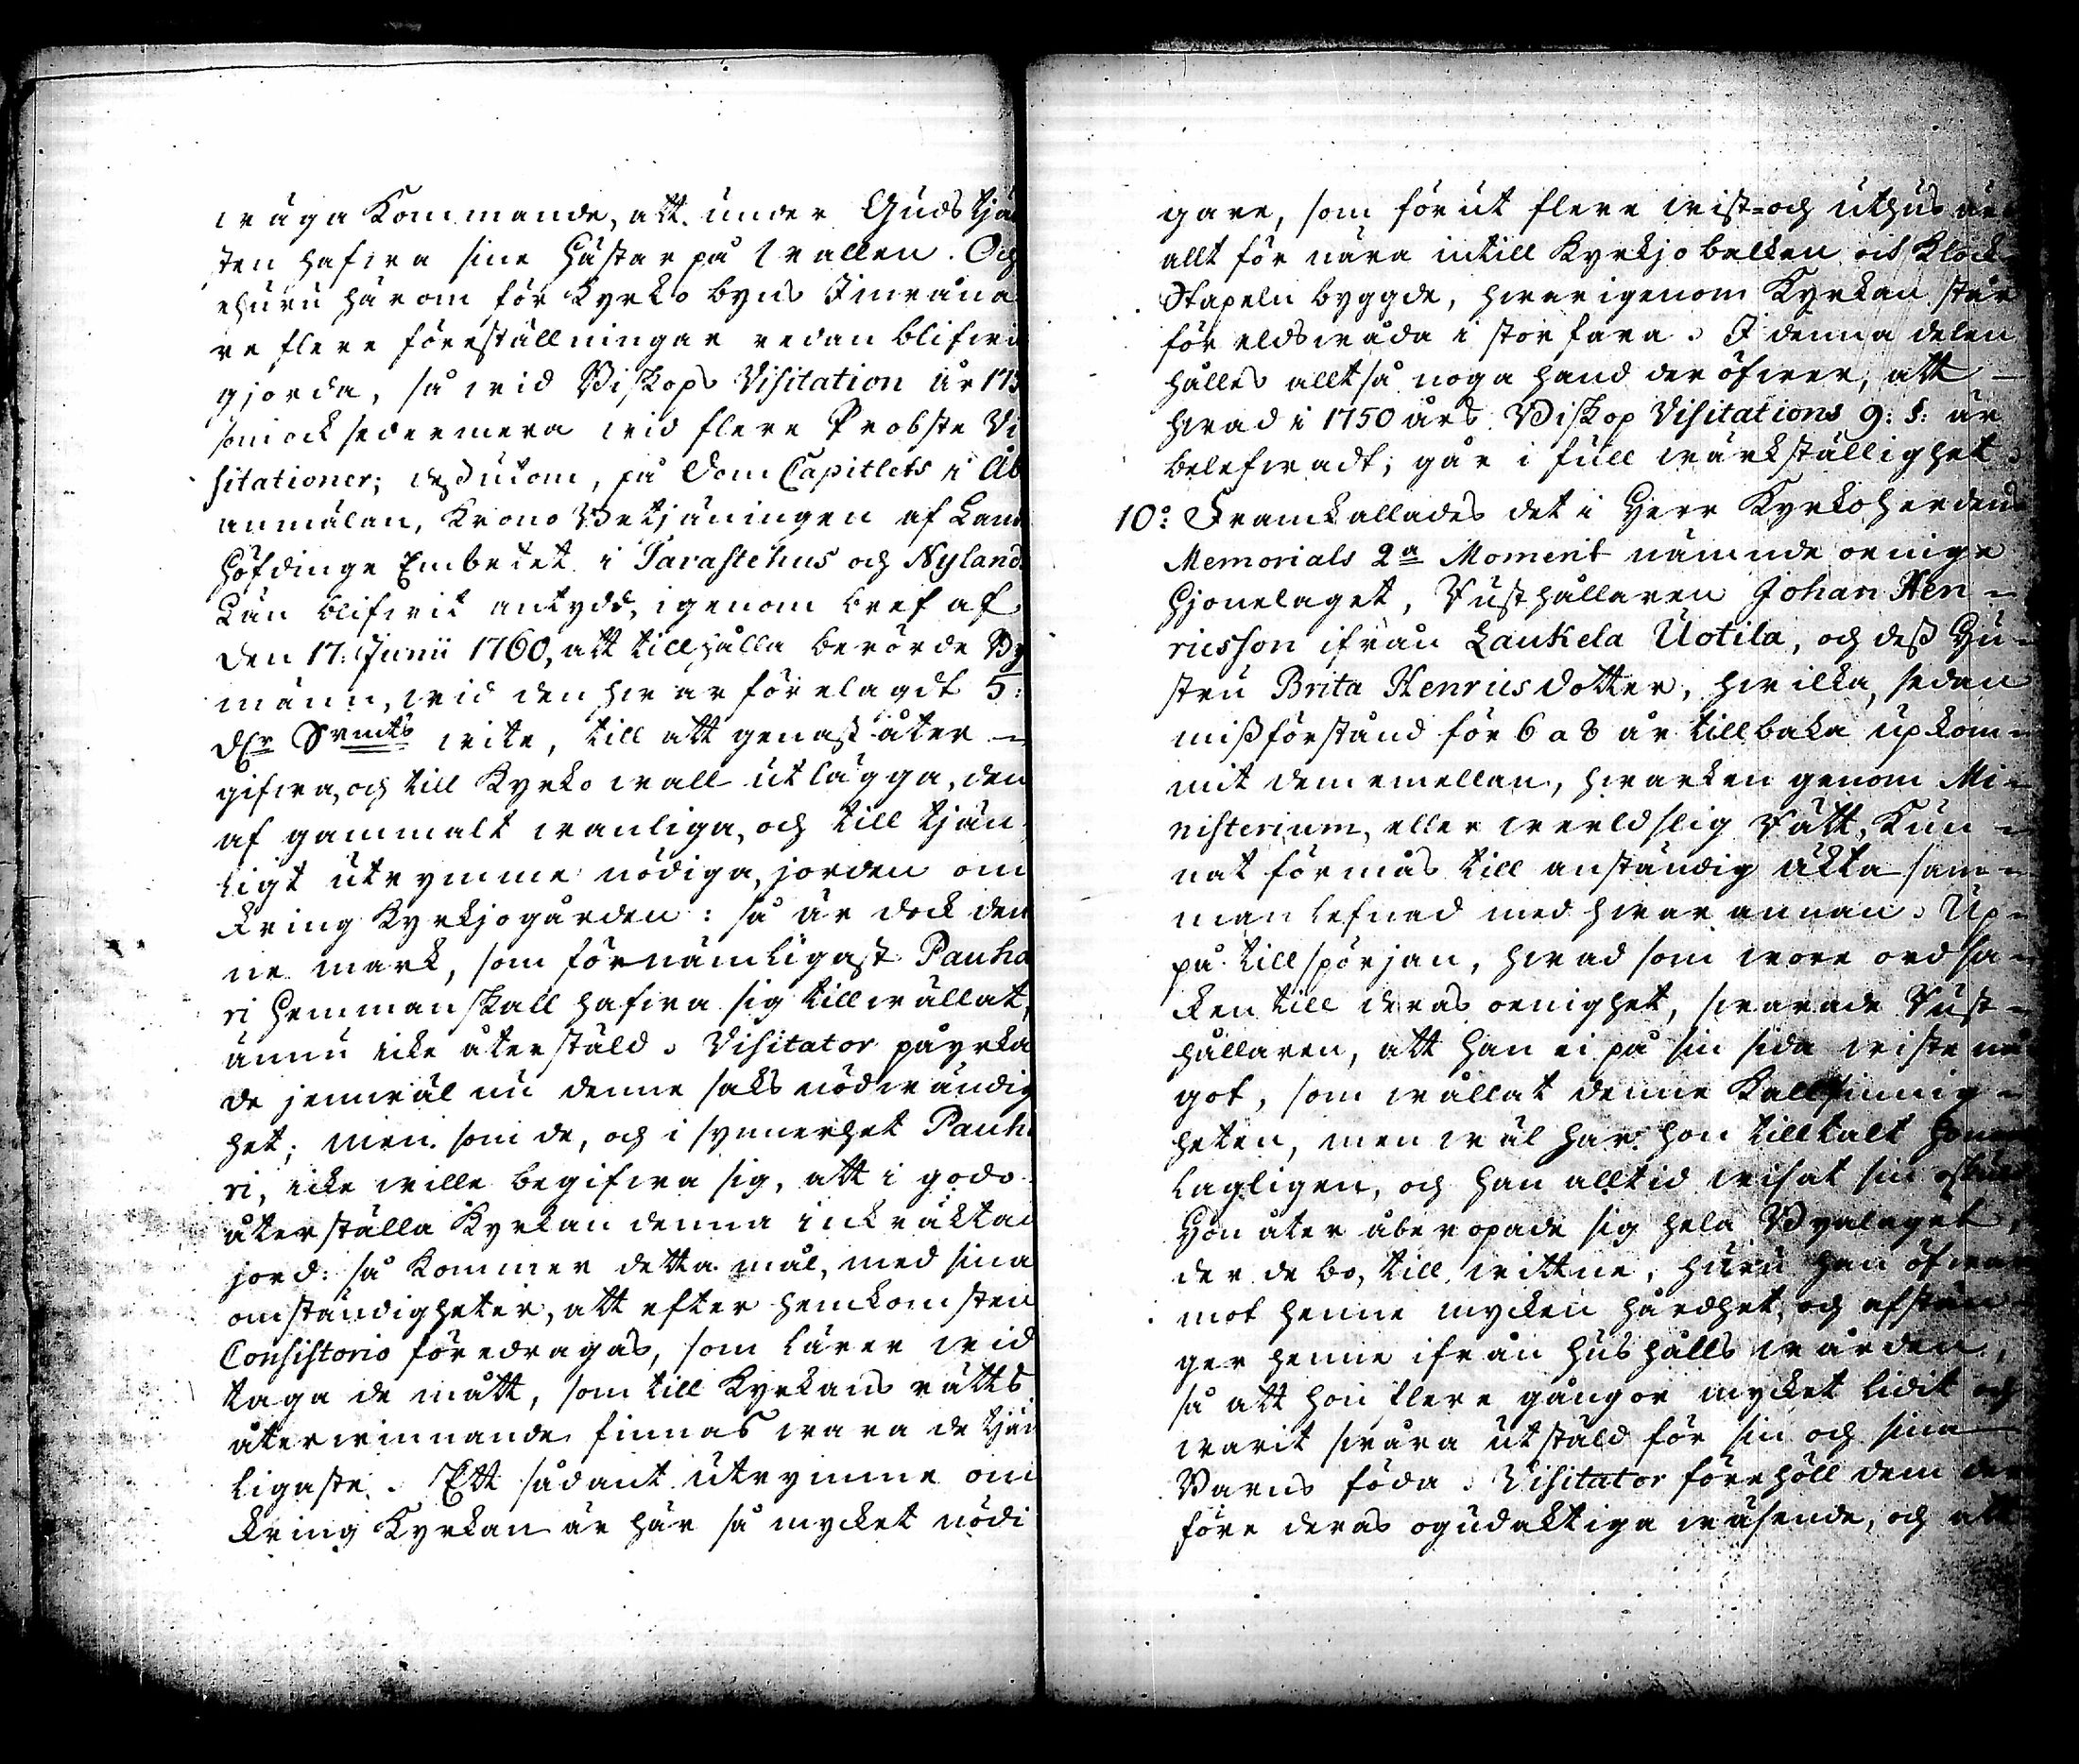 wäga kommande, att under Gudstjän
sten hafwa sine Hästar på wallen. Och
ehuru härom för Kyrko byns Inwåna
re flere föreställningar redan blifwit
gjorda, så wid Biskops Visitation år 175
som ock sedermera wid flere Probste Vi
sitationer; dessutom, på Dom Capitlets i Åb
anmälan, Krono Betjäningen af Lands
höfdinge Embetet i Tavastehus och Nylands
Län blifwit antydd, igenom bref af
den 17: Junii 1760, att tillhålla berörde By
männ, wid den hwar förelagdt 5:
dlr Srmts wite, till att genast åter
gifwa, och till Kyrko wall utlägga, den
af gammalt wanliga, och till tjän
ligt utrymme nödiga, jorden om
kring Kyrkjogården: så är dock den
ne mark, som förnämligast Pauha
ri Hemman skall hafwa sig tillwällat,
ännu icke återstäld. Visitator påyrka
de jemwäl nu denne saks nödwändig
het; men som de, och i synnerhet Pauha
ri, icke wille begifwa sig, att i godo
återställa Kyrkan denna inkräktad
jord: så kommer detta mål, med sina
omständigheter, att efter hemkomsten
Consistorio föredragas, som lärer wid
taga de mått, som till Kyrkans rätts
återwinnande finnas wara de tjän
ligaste. Ett sådant utrymme om
kring Kyrkan är här så mycket nödi
gare, som förut flere wist= och uthus är
allt för nära intill Kyrkjobalken och Klock
Stapeln byggde, hwarigenom Kyrkan står
för eldswåda i stor fara. I denna delen
hålles alltså noga hand deröfwer, att
hwad i 1750 års Biskop Visitations 9: §: är
belefwadt, går i full wärkställighet.
10:o Framkallades det i Herr Kyrkoherdens
Memorials 2a Moment nämnde oenige
Hjonelaget, Rusthållaren Johan Hen=
ricsson ifrån Laukela Uotila, och dess Hu=
stru Brita Henricsdotter, hwilka, sedan
missförstånd för 6 a 8 år tillbaka upkom=
mit dem emellan, hwarken genom Mi=
nisterium, eller werldslig Rätt, kun=
nat förmås till anständig äkta sam=
manlefnad med hwar annan. Up=
på tillspörjan, hwad som wore ordsa=
ken till deras oenighet, swarade Rust=
hållaren, att han ei på sin sida wiste nå
got, som wållat denne kallsinnig=
heten, men wäl har hon tilltalt honom
lagligen, och han alltid wisat sin oskuld
Hon åter åberopade sig hela Byalaget,
der de bo, till wittne, huru han öfwat
mot henne mycken hårdhet, och afstän
ger henne ifrån hushålls wården,
så att hon flere gångor mycket lidit och
warit swåra utstäld för sin och sina
Barns föda. Visitator föreholl dem der
före deras ogudaktiga wäsende, och att